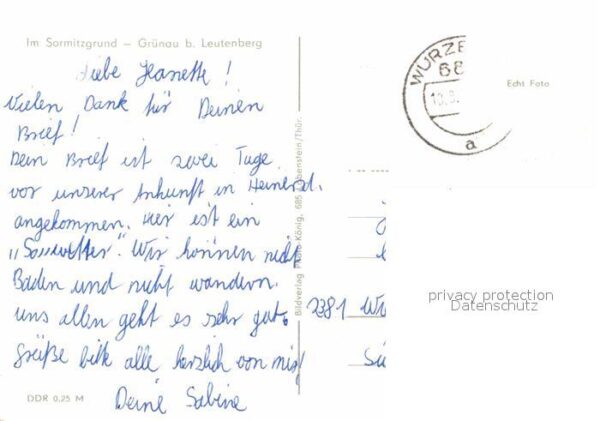 Im Sormitzgrund – Grünau b. Leutenberg
Liebe Jeanette!
Vielen Dank für Deinen
Brief!
Dein Brief ist zwei Tage
vor unserer Ankunft in Heinersd.
angekommen. Hier ist ein
„Sauwetter“. Wir können nicht
Baden und nicht wandern.
uns allen geht es sehr gut.
Grüße bitte alle herzlich von mir!
Deine Sabine
DDR 0,25 M
Bildverlag König, 685 Lobenstein/Thür.
WURZB
68
a
Echt Foto
privacy protection
Datenschutz